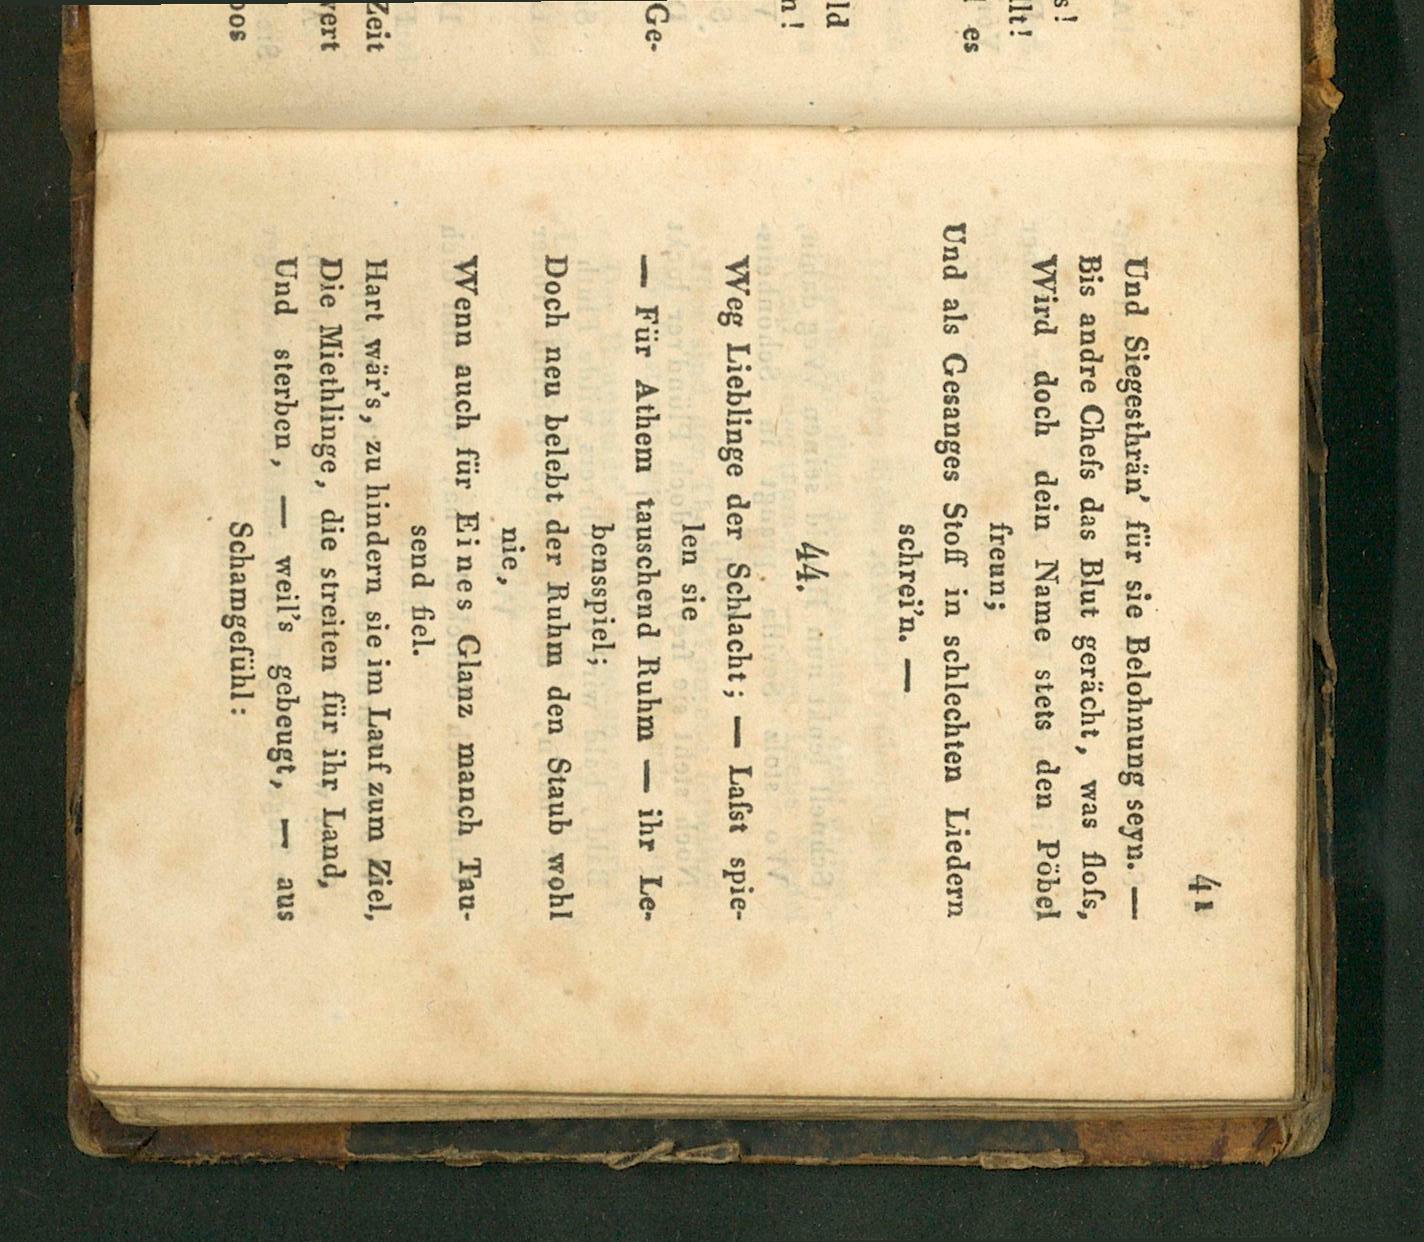 s!
llt!
es
ld
n!
Ge-
Zeit
vert
oos
41
Und Siegesthrän’ für sie Belohnung seyn. —
Bis andre Cheſs das Blut gerächt, was floſs,
Wird doch dein Name stets den Pöbel
freun;
Und als Gesanges Stoff in schlechten Liedern
schrei’n. —
44.
Weg Lieblinge der Schlacht; — Laſst spie-
len sie
— Für Athem tauschend Ruhm — ihr Le-
bensspiel;
Doch neu belebt der Ruhm den Staub wohl
nie,
Wenn auch für Eines Glanz manch Tau-
send fiel.
Hart wär’s, zu hindern sie im Lauf zum Ziel,
Die Miethlinge, die streiten für ihr Land,
Und sterben, — weil’s gebeugt, — aus
Schamgefühl: